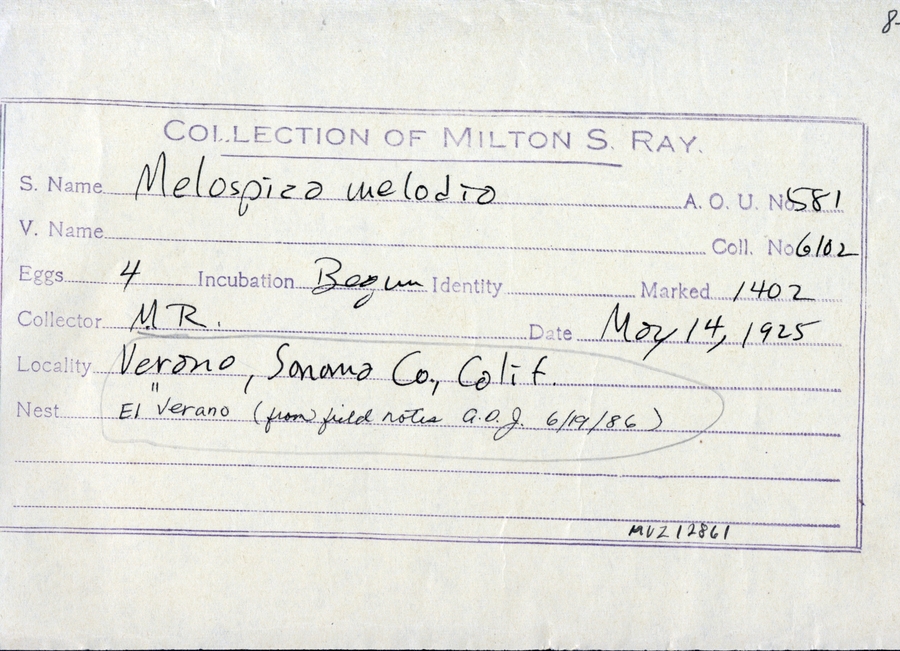 8-
COLLECTION OF MILTON S. RAY.
S. Name Melospiza melodia A. O. U. No 581
V. Name Coll. No 6102
Eggs 4 Incubation Begun Identity Marked 1402
Collector M R. Date May 14, 1925
Locality Verano, Sonoma Co., Calif.
Nest El "Verano (from field notes a.o.J. 6/19/86)
MVZ 12861